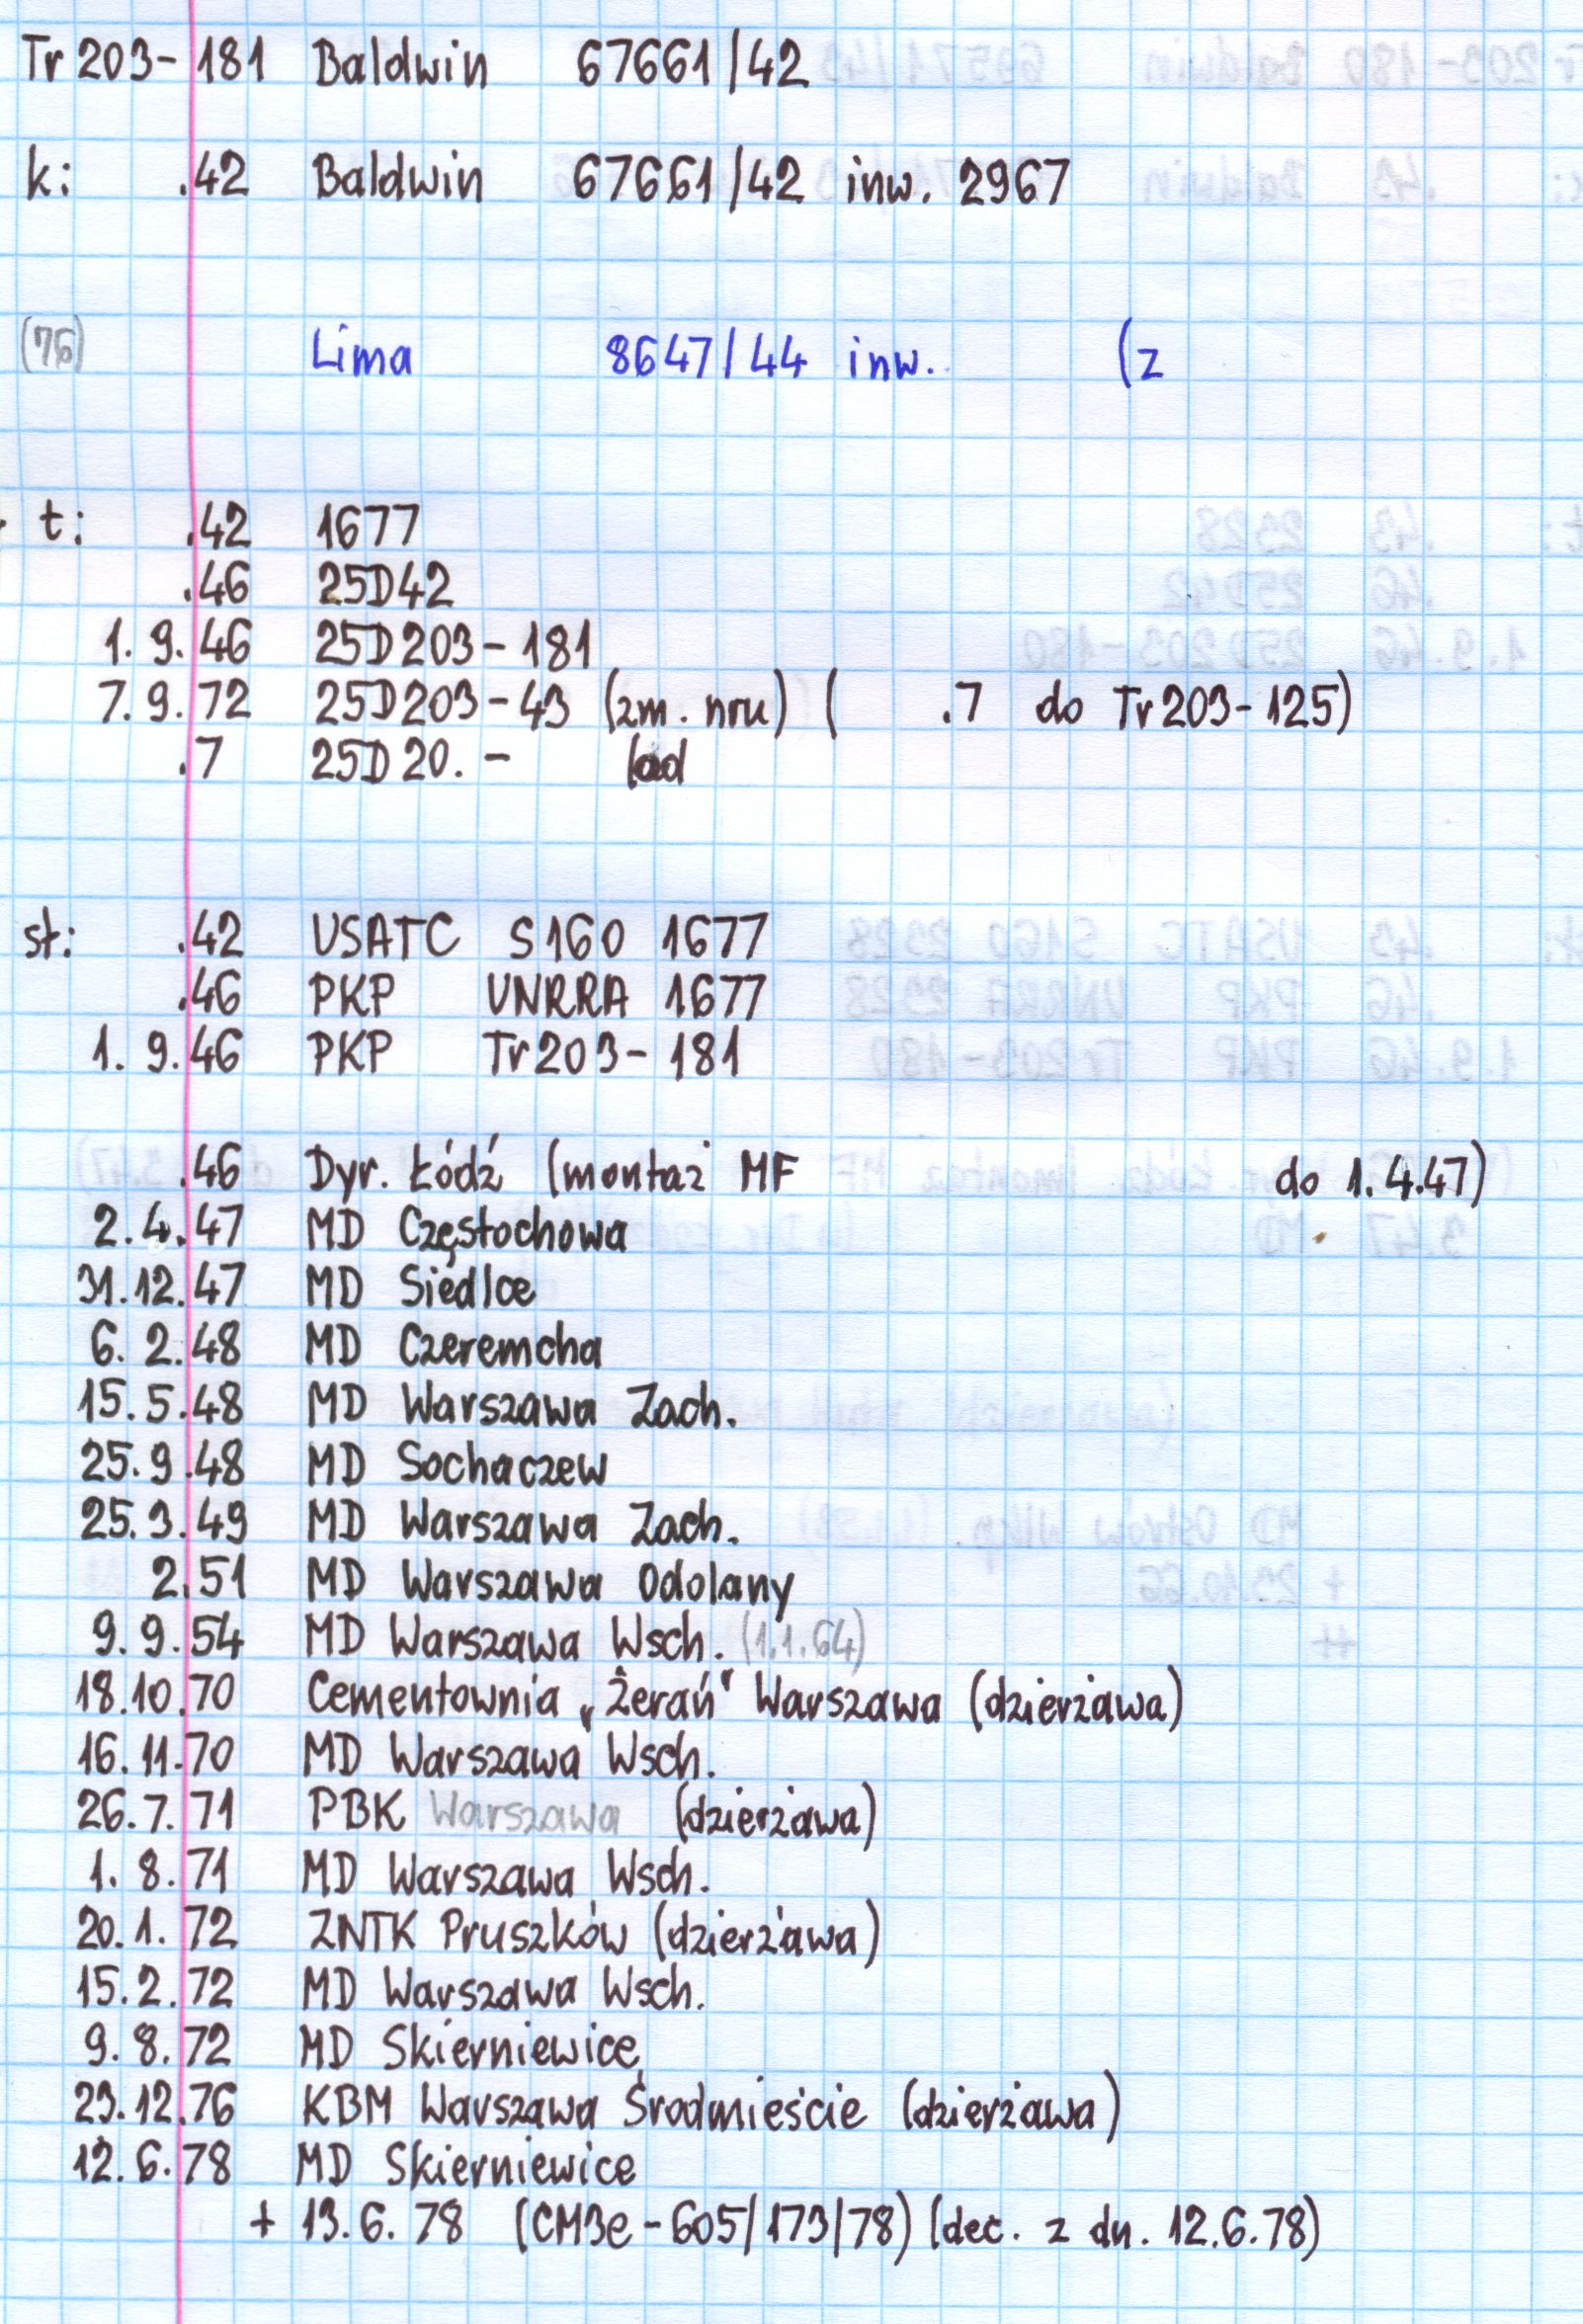 Tr 203-181 Baldwin 67661/42
k: .42 Baldwin 67661/42 inw. 2967
(76) Lima 8647/44 inw. (z
t: .42 1677
.46 25D42
1. 9. 46 25D203-181
7. 9. 72 25D203-43 (zm. nru) ( .7 do Tr203-125)
.7 25D20. - (od
st: .42 USATC S160 1677
.46 PKP UNRRA 1677
1. 9. 46 PKP Tr203-181
.46 Dyr. Łódź (montaż MF do 1.4.47)
2.4.47 MD Częstochowa
31.12.47 MD Siedlce
6. 2.48 MD Czeremcha
15.5.48 MD Warszawa Zach.
25.9.48 MD Sochaczew
25.3.49 MD Warszawa Zach.
2.51 MD Warszawa Odolany
9.9.54 MD Warszawa Wsch. (1.1.64)
18.10.70 Cementownia „Żerań" Warszawa (dzierżawa)
16.11.70 MD Warszawa Wsch.
26.7.71 PBK Warszawa (dzierżawa)
1. 8.71 MD Warszawa Wsch.
20.1.72 ZNTK Pruszków (dzierżawa)
15.2.72 MD Warszawa Wsch.
9. 8.72 MD Skierniewice
23.12.76 KBM Warszawa Środmieście (dzierżawa)
12.6.78 MD Skierniewice
+ 13.6.78 (CM3e-605/173/78) (dec. z dn. 12.6.78)